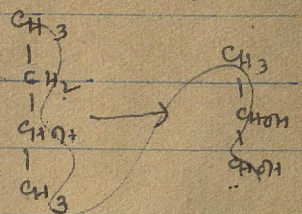 CH3
CH2
CHOH
CH3
CH3
CHOH
CHOH